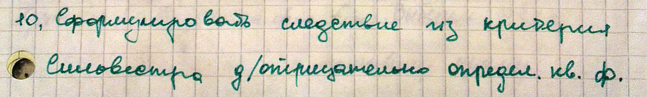 10. Сформулировать следствие из критерия
Сильвестра д/отрицательно определ. кв. ф.